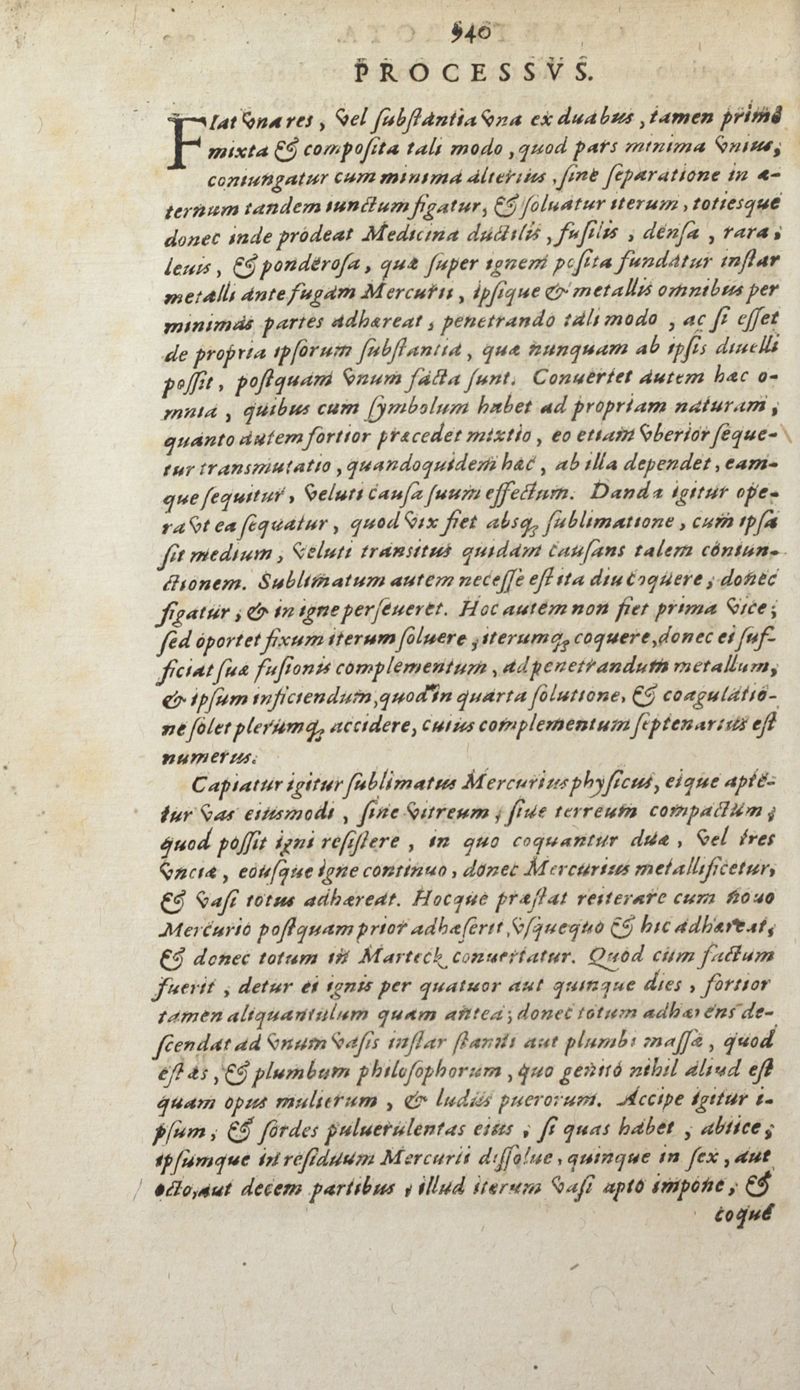 940
PROCESSVS.
Fiat vna res, vel substantia vna ex duabus, tamen primò
mixta & composita tali modo, quod pars minima vnius,
coniungatur cum minima alterius, sine separatione in æ-
ternum tandem iunctum figatur, & soluatur iterum, totiesque
donec inde prodeat Medicina ductilis, fusilis, densa, rara,
leuis, & ponderosa, quæ super ignem posita fundatur instar
metalli ante fugam Mercurii, ipsique & metallis omnibus per
minimas partes adhæreat, penetrando tali modo, ac si esset
de propria ipsorum substantia, quæ nunquam ab ipsis diuelli
possit, postquam vnum facta sunt. Conuertet autem hæc o-
mnia, quibus cum symbolum habet ad propriam naturam,
quanto autem fortior præcedet mixtio, eo etiam vberior seque-
tur transmutatio, quandoquidem hæc, ab illa dependet, eam-
que sequitur, veluti causa suum effectum. Danda igitur ope-
ra vt ea sequatur, quod vix fiet absq; sublimatione, cum ipsa
sit medium, veluti transitus quidam causans talem coniun-
ctionem. Sublimatum autem necesse est ita diu coquere, donec
figatur, & in igne perseueret. Hoc autem non fiet prima vice;
sed oportet fixum iterum soluere, iterumq; coquere, donec ei suf-
ficiat suæ fusionis complementum, ad penetrandum metallum,
& ipsum inficiendum, quod in quarta solutione, & coagulatio-
ne solet plerumq; accidere, cuius complementum septenarius est
numerus.
Capiatur igitur sublimatus Mercurius physicus, eique apte-
tur vas eiusmodi, siue vitreum, siue terreum compactum,
quod possit igni resistere, in quo coquantur duæ, vel tres
vnciæ, eousque igne continuo, donec Mercurius metallificetur,
& vasi totus adhæreat. Hocque præstat reiterare cum nouo
Mercurio postquam prior adhæserit, vsquequo & hic adhæreat,
& donec totum in Marteck conuertatur. Quod cùm factum
fuerit, detur ei ignis per quatuor aut quinque dies, fortior
tamen aliquantulum quam antea; donec totum adhærens de-
scendat ad vnum vasis instar stanni aut plumbi massæ, quod
est æs, & plumbum philosophorum, quo genito nihil aliud est
quam opus mulierum, & ludus puerorum. Accipe igitur i-
psum, & sordes puluerulentas eius, si quas habet, abiice,
ipsumque in residuum Mercurii dissolue, quinque in sex, aut
octo, aut decem partibus, illud iterum vasi apto impone, &
coque